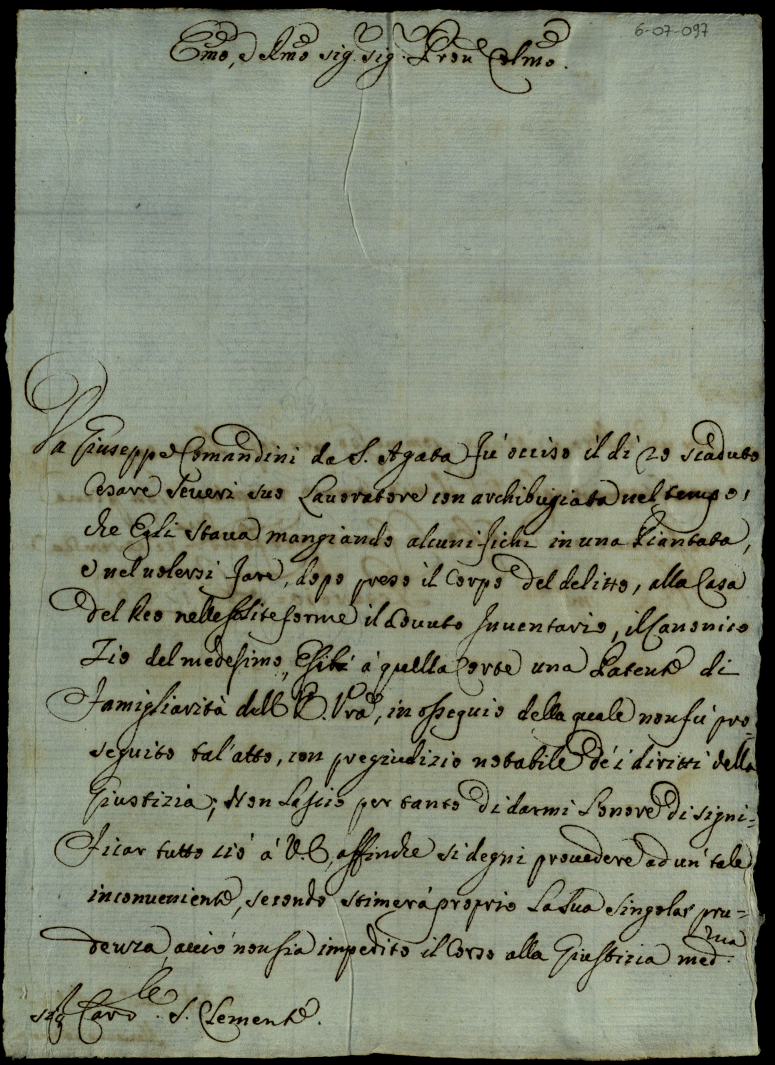 6-07-097
Emo, e Rmo sig. sig. Pron Colmo.
Da Giuseppe Comandini da S. Agata fu' occiso il di 20 scaduto
Cesare Severi suo Lavoratore con archibugiata nel tempo,
che Egli stava mangiando alcuni fichi in una Piantata,
e nel volersi fare, dopo preso il Corpo del delitto, alla Casa
del Reo nelle solite forme il dovuto Inventario, il Canonico
Zio del medesimo, Esibì a' quella Corte una Patente di
Famigliarità dell'E. Vra, in ossequio della quale non fu' pro-
seguito tal'atto, con pregiudizio notabile de i diritti della
Giustizia; Non Lascio per tanto di darmi L'onore di signi-
ficar tutto ciò à V.E. affinche si degni provedere ad un' tale
inconveniente, secondo stimerà proprio La Sua singolar pru-
denza, acciò non sia impedito il Corso alla Giustizia med.ma
sig. Card.le S. Clemente.